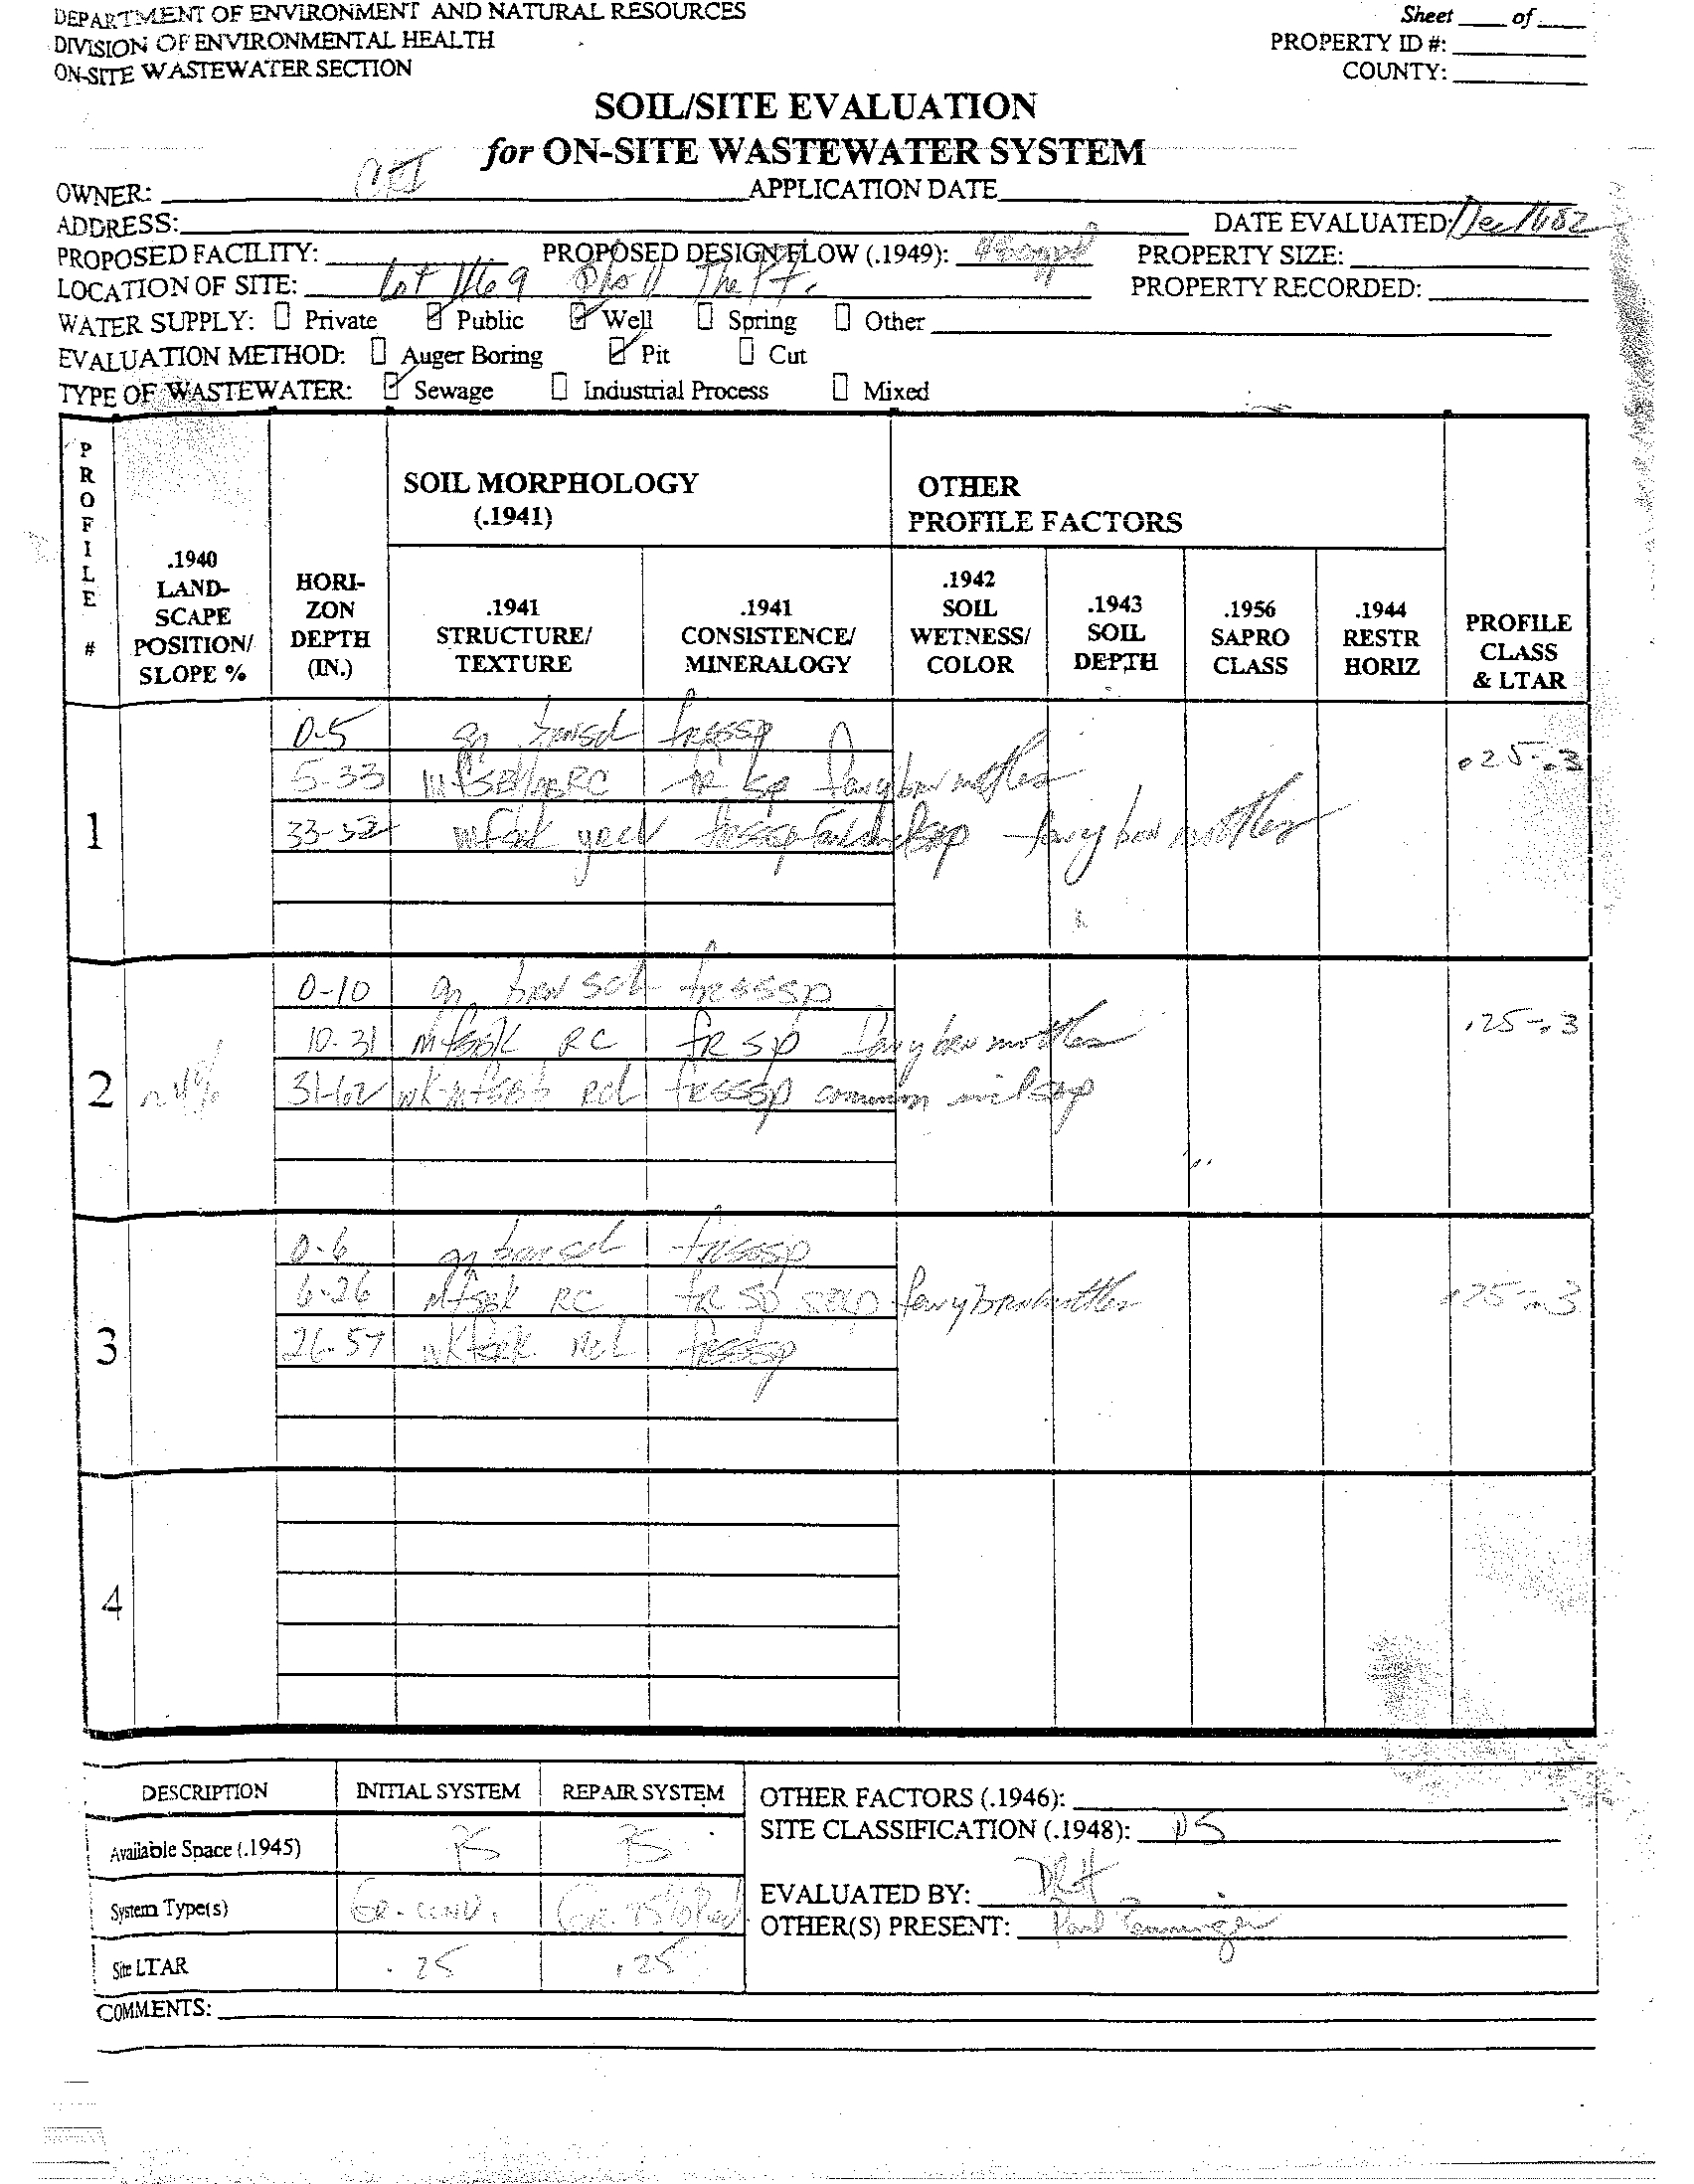 DEPARTMENT OF ENVIRONMENT AND NATURAL RESOURCES
DIVISION OF ENVIRONMENTAL HEALTH
ON-SITE WASTEWATER SECTION
Sheet ____ of ____
PROPERTY ID #:
COUNTY:
SOIL/SITE EVALUATION
for ON-SITE WASTEWATER SYSTEM
OWNER: APPLICATION DATE
ADDRESS: DATE EVALUATED: Dec
PROPOSED FACILITY: PROPOSED DESIGN FLOW (.1949): PROPERTY SIZE:
LOCATION OF SITE: Lot PROPERTY RECORDED:
WATER SUPPLY: Private Public Well Spring Other
EVALUATION METHOD: Auger Boring Pit Cut
TYPE OF WASTEWATER: Sewage Industrial Process Mixed
PROFILE #
.1940 LAND-SCAPE POSITION/ SLOPE %
HORI-ZON DEPTH (IN.)
SOIL MORPHOLOGY (.1941)
.1941 STRUCTURE/ TEXTURE
.1941 CONSISTENCE/ MINERALOGY
OTHER PROFILE FACTORS
.1942 SOIL WETNESS/ COLOR
.1943 SOIL DEPTH
.1956 SAPRO CLASS
.1944 RESTR HORIZ
PROFILE CLASS & LTAR
1
0-5 frsssp
5-33 fr sp few y brn mottles
33-52 few y brn mottles
.25-.3
2
~4%
0-10 gr brn scl frsssp
10-31 mfsbk RC fr sp few y brn mottles
31-62 frsssp common
.25-.3
3
0-6 gr brn scl frsssp
6-26 mfsbk RC fr sp few y brn mottles
26-57 frsssp
.25-.3
4
DESCRIPTION INITIAL SYSTEM REPAIR SYSTEM
Available Space (.1945) PS PS
System Type(s) GR. CONV.
Site LTAR .25 .25
OTHER FACTORS (.1946):
SITE CLASSIFICATION (.1948): PS
EVALUATED BY:
OTHER(S) PRESENT: Paul
COMMENTS: